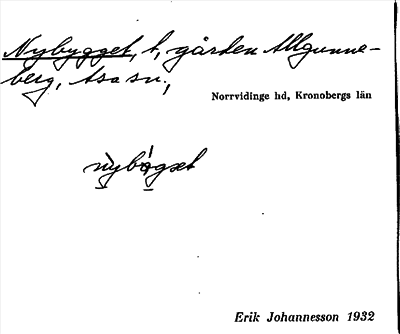 Nybygget, t, gården Allgunne-
berg, Asa sn.;
Norrvidinge hd, Kronobergs län
Erik Johannesson 1932